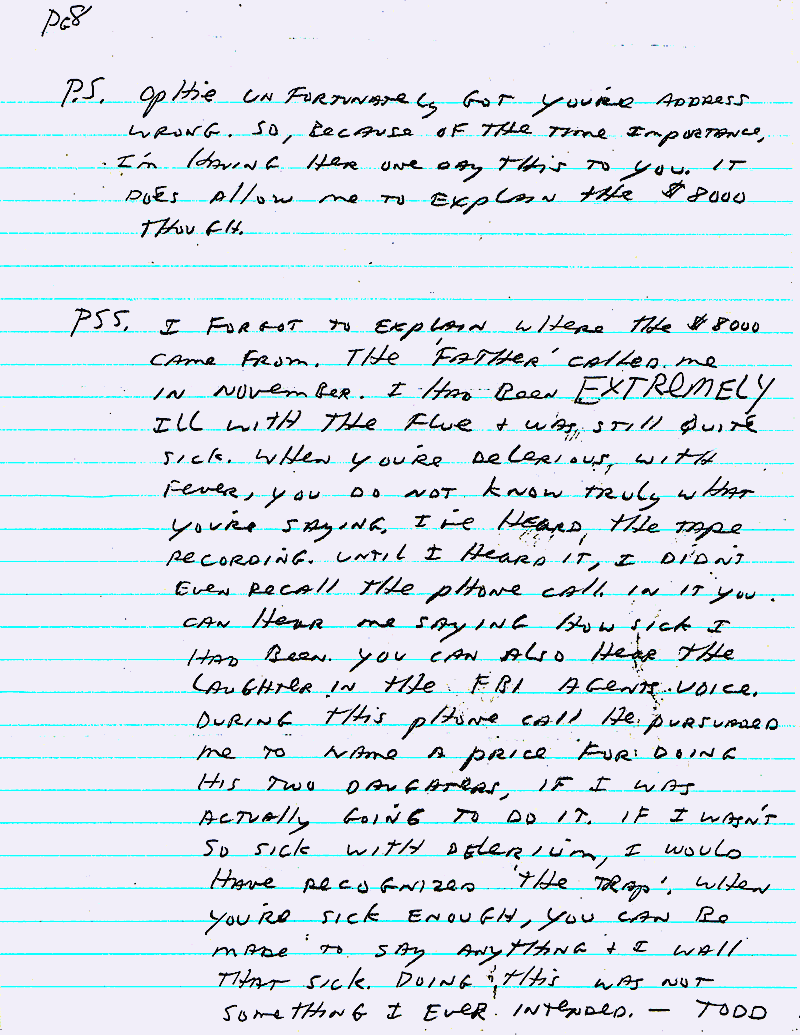 PG8
P.S. Ophie unfortunately got you're address
wrong. So, because of the time importance,
I'm having her one day this to you. It
does allow me to explain the $8000
though.
PSS. I forgot to explain where the $8000
came from. The 'Father' called me
in November. I had been EXTREMELY
ill with the flue + was still quite
sick. When you're delerious, with
fever, you do not know truly what
you're saying. I've heard, the tape
recording. Until I heard it, I didn't
even recall the phone call. In it you
can hear me saying how sick I
had been. You can also hear the
laughter in the FBI agents voice.
During this phone call he pursuaded
me to name a price for doing
his two daughters, if I was
actually going to do it. If I wasn't
so sick with delerium, I would
have recognized 'the trap'. When
you're sick enough, you can be
made to say anything + I wall
that sick. Doing this was not
something I ever intended. — Todd